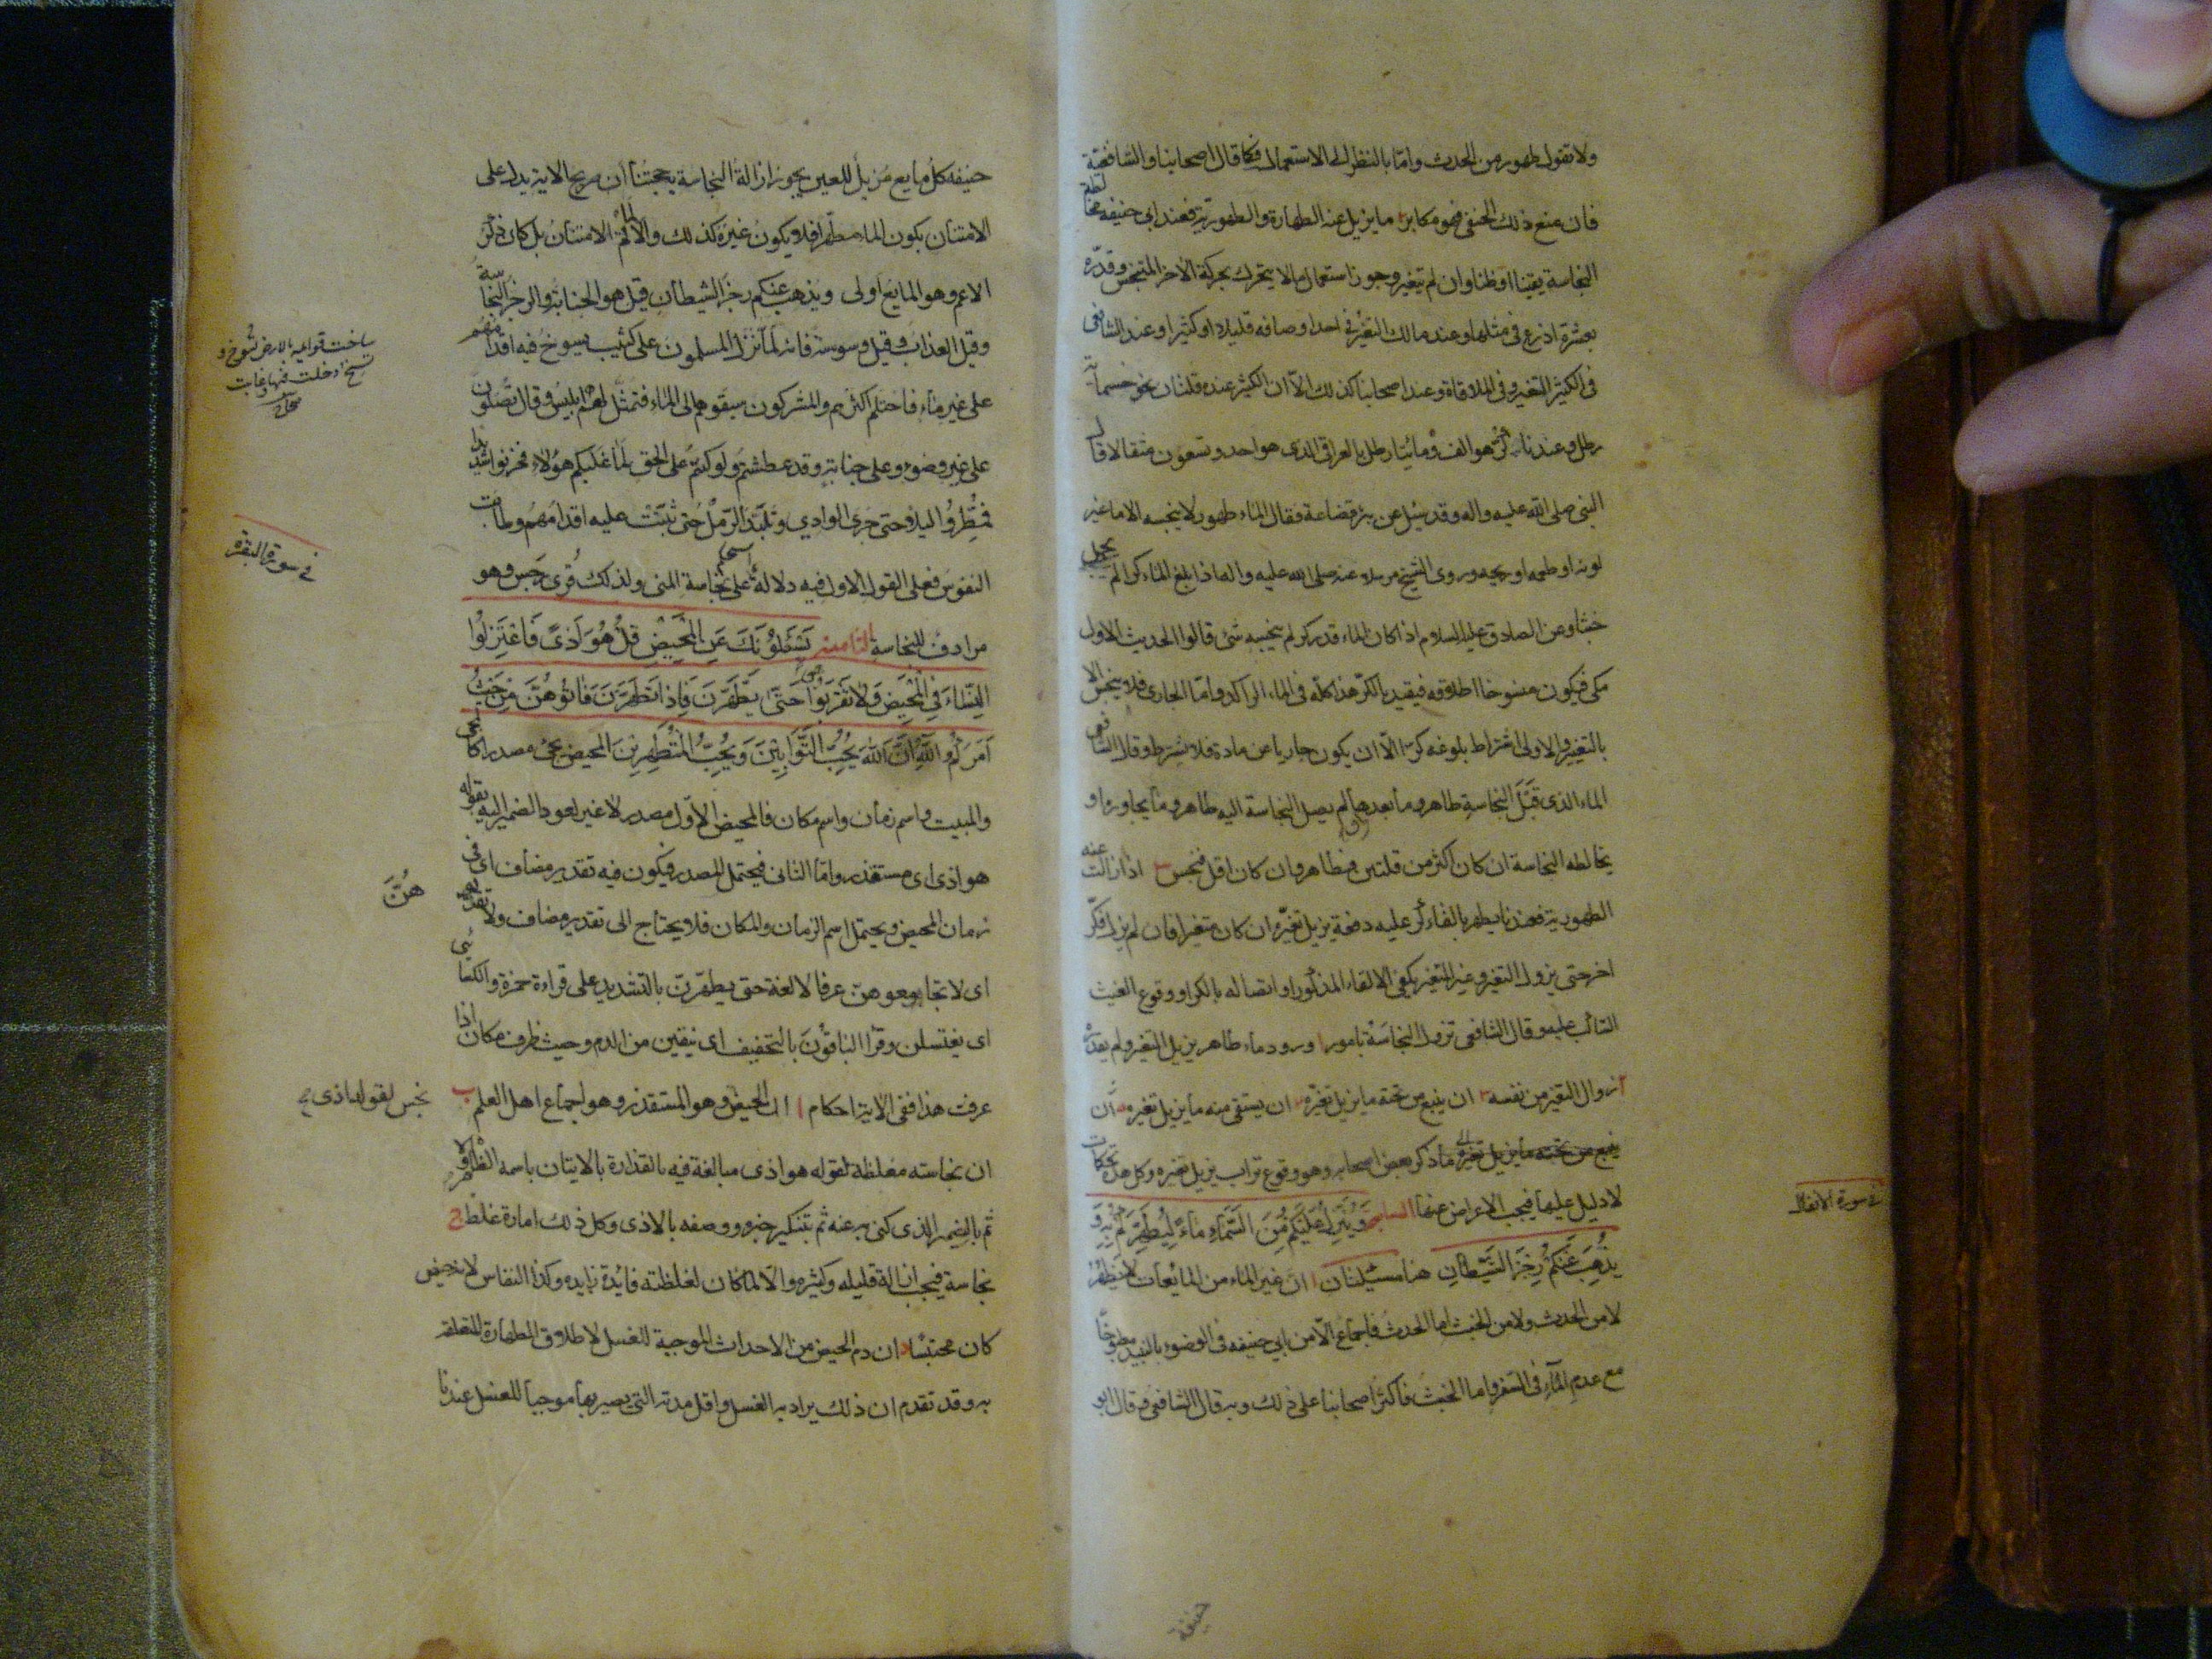 ولا تقول طهور من الحدث واما بالنظر الى الاستعمال فكما قال اصحابنا والشافعية
فان منع ذلك الحنفى فهو مكابر ما يزيل عنه الطهارة والطهورية فعند ابى حنيفه مخالطة
النجاسة يقينا او ظنا وان لم تتغير وجوز استعمال ما لا يتحرك بحركة الاخر المتنجس وقدّره
بعشرة اذرع فى مثلها وعند مالك التغير فى احد اوصافه قليلا او كثيرا وعند الشافعى
فى الكثير التغير وفى الملاقاة وعند اصحابنا كذلك الّا ان الكثير عنده قلتان نحو خمسمائة
رطل وعندنا كرّ هو الف ومائتا رطل بالعراقى الذى هو احد وتسعون مثقالا قال
النبى صلى الله عليه واله وقد سئل عن بئر قضاعة فقال الماء طهور لا ينجسه الا ما غير
لونه او طعمه او ريحه وروى الشيخ مرسلا عنه صلى الله عليه واله اذا بلغ الماء كرا لم يحمل
خبثا وعن الصادق عليه السلام اذا كان الماء قدر كر لم ينجسه شئ قالوا الحديث الاول
مكى فيكون منسوخا اطلاقه فيقيد بالكرّ هذا كله فى الماء الراكد واما الجارى فلا ينجس الا
بالتغير والاولى اشتراط بلوغه كرّا الّا ان يكون جاريا عن مادة فلا يشترط وقال الشافعى
الماء الذى قبل النجاسة طاهر وما بعدها لم يصل النجاسة اليه طاهر وما يجاورها و
يخالطه النجاسة ان كان اكثر من قلتين فطاهر وان كان اقل فنجس ٣ اذا زالت عنه
الطهورية فعندنا يطهر بالقاء كر عليه دفعة يزيل تغيّره ان كان متغيرا فان لم يزل فكر
اخر حتى يزول التغير وغير المتغير يكفى الالقاء المذكور او اتصاله بالكر او وقوع الغيث
الساكب عليه وقال الشافعى تزول النجاسة بامور ١ ورود ماء طاهر يزيل التغير ولم يقدّره
٢ زوال التغير من نفسه ٣ ان ينبع من تحته ما يزيل تغيّره ٤ ان يستقى منه ما يزيل تغيره ٥ ان
ينبع من تحته ما يزيل تغيره ما ذكر بعض اصحابه وهو وقوع تراب يزيل تغيره وكل هذه تحكمات
لا دليل عليها فيجب الاعراض عنها السابعة وَيُنَزِّلُ عَلَيْكُمْ مِّنَ السَّمَاءِ مَاءً لِيُطَهِّرَكُمْ بِهِ وَ
فى سورة الانفال
يُذْهِبَ عَنْكُمْ رِجْزَ الشَّيْطَانِ هنا مسئلتان ١ ان غير الماء من المايعات لا يطهر
لا من الحدث ولا من الخبث اما الحدث فاجماع الّا من ابي حنيفه فى الوضوء بالنبيذ مطبوخا
مع عدم الماء فى السفر واما الخبث فاكثر اصحابنا على ذلك وبه قال الشافعى وقال ابو
حنيفة
حنيفه كل مايع مُزيل للعين يجوز ازالة النجاسة به حجتنا ان صريح الاية يدل على
الامتنان بكون الماء مطهرا فلا يكون غيره كذلك والّا لما تم الامتنان بل كان ذكر
الاعم وهو المايع اولى ويذهب عنكم رجز الشيطان قيل هو الجنابة والرجز النجاسة
وقيل العذاب وقيل وسوسته فانه لما نزل المسلمون على كثيب يسوخ فيه اقدامهم
ساخت قوايمه بالارض تسوخ و
تسيخ دخلت فيها وغابت
صحاح
على غير ماء فاحتلم اكثرهم والمشركون سبقوهم الى الماء فتمثل لهم ابليس وقال تصلّون
على غير وضوء وعلى جنابة وقد عطشتم ولو كنتم على الحق لما غلبكم هؤلاء فحزنوا شديدا
فمُطِرُوا ليلا حتى جرى الوادى وتلبّد الرمل حتى ثبتت عليه اقدامهم وطابت
فى سورة البقرة
النفوس فعلى القول الاول فيه دلالة على نجاسة المنى ولذلك قرى رجس وهو
مرادف للنجاسة الثامنة يَسْئَلُونَكَ عَنِ الْمَحِيضِ قُلْ هُوَ أَذًى فَاعْتَزِلُوا
النِّسَاءَ فِي الْمَحِيضِ وَلَا تَقْرَبُوا هن حَتَّى يَطَّهَّرْنَ فَإِذَا تَطَهَّرْنَ فَأْتُوهُنَّ مِنْ حَيْثُ
أَمَرَكُمُ اللّٰهُ إِنَّ اللّٰهَ يُحِبُّ التَّوَّابِينَ وَيُحِبُّ الْمُتَطَهِّرِينَ المحيض يجئ مصدرا كالمجئ
والمبيت واسم زمان واسم مكان فالمحيض الاوّل مصدر لا غير لعود الضمير اليه بقوله
هو اذى اى مستقذر واما الثانى فيحتمل المصدر فيكون فيه تقدير مضاف اى فى
هُنَّ
زمان المحيض ويحتمل اسم الزمان والمكان فلا يحتاج الى تقدير مضاف ولا تقربوهن
اى لا تجامعوهن عرفا لا لغة حتى يطهّرن بالتشديد على قراءة حمزة والكسائى
اى يغتسلن وقرا الباقون بالتخفيف اى ينقين من الدم وحيث ظرف مكان اذا
عرفت هذا ففى الاية احكام ا ان الحيض وهو المستقذر وهو اجماع اهل العلم ب
نجس لقوله اذى
ان نجاسته مغلظة لقوله هو اذى مبالغة فيه بالقذارة بالاتيان باسمه الظاهر
ثم بالضمير الذى كنى به عنه ثم بتنكير خبره ووصفه بالاذى وكل ذلك امارة غلظ ج
نجاسة فيجب ازالة قليله وكثيره والّا لما كان لغلظته فايدة زايده وكذا النفاس لانه حيض
كان محتبسا د ان دم الحيض من الاحداث الموجبة للغسل لاطلاق الطهارة المتعلقة
به وقد تقدم ان ذلك يراد به الغسل واقل مدته التى يصير بها موجبا للغسل عندنا